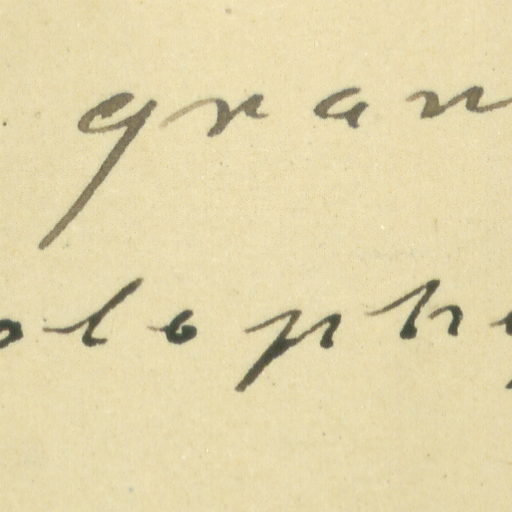 gran
oloph